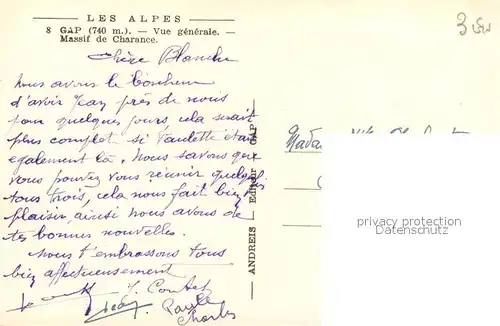 LES ALPES
8 GAP (740 m.). — Vue générale. —
Massif de Charance.
3
Chère Blanche
Nous avons le bonheur
d'avoir Jean près de nous
pour quelques jours cela serait
plus complet si Paulette était
également là. Nous savons que
vous pouvez vous réunir quelquef.
tous trois, cela nous fait bien
plaisir, ainsi nous avons de
tes bonnes nouvelles.
Nous t'embrassons tous
bien affectueusement
J. Contet
Jean
Paule
Charles
ANDREIS — Editeur — GAP
Madame
privacy protection
AnsichtskartenCenter